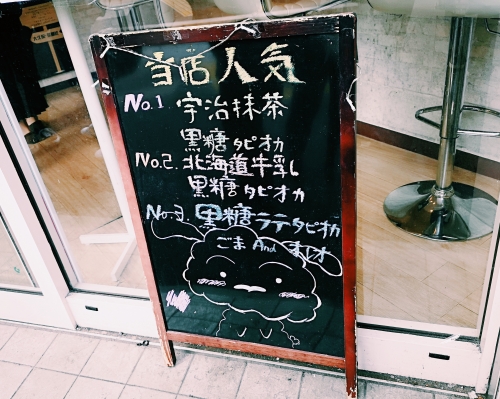 当店人気
No.1. 宇治抹茶
黒糖タピオカ
No.2. 北海道牛乳
黒糖タピオカ
No.3. 黒糖ラテタピオカ
ごま And オレオ